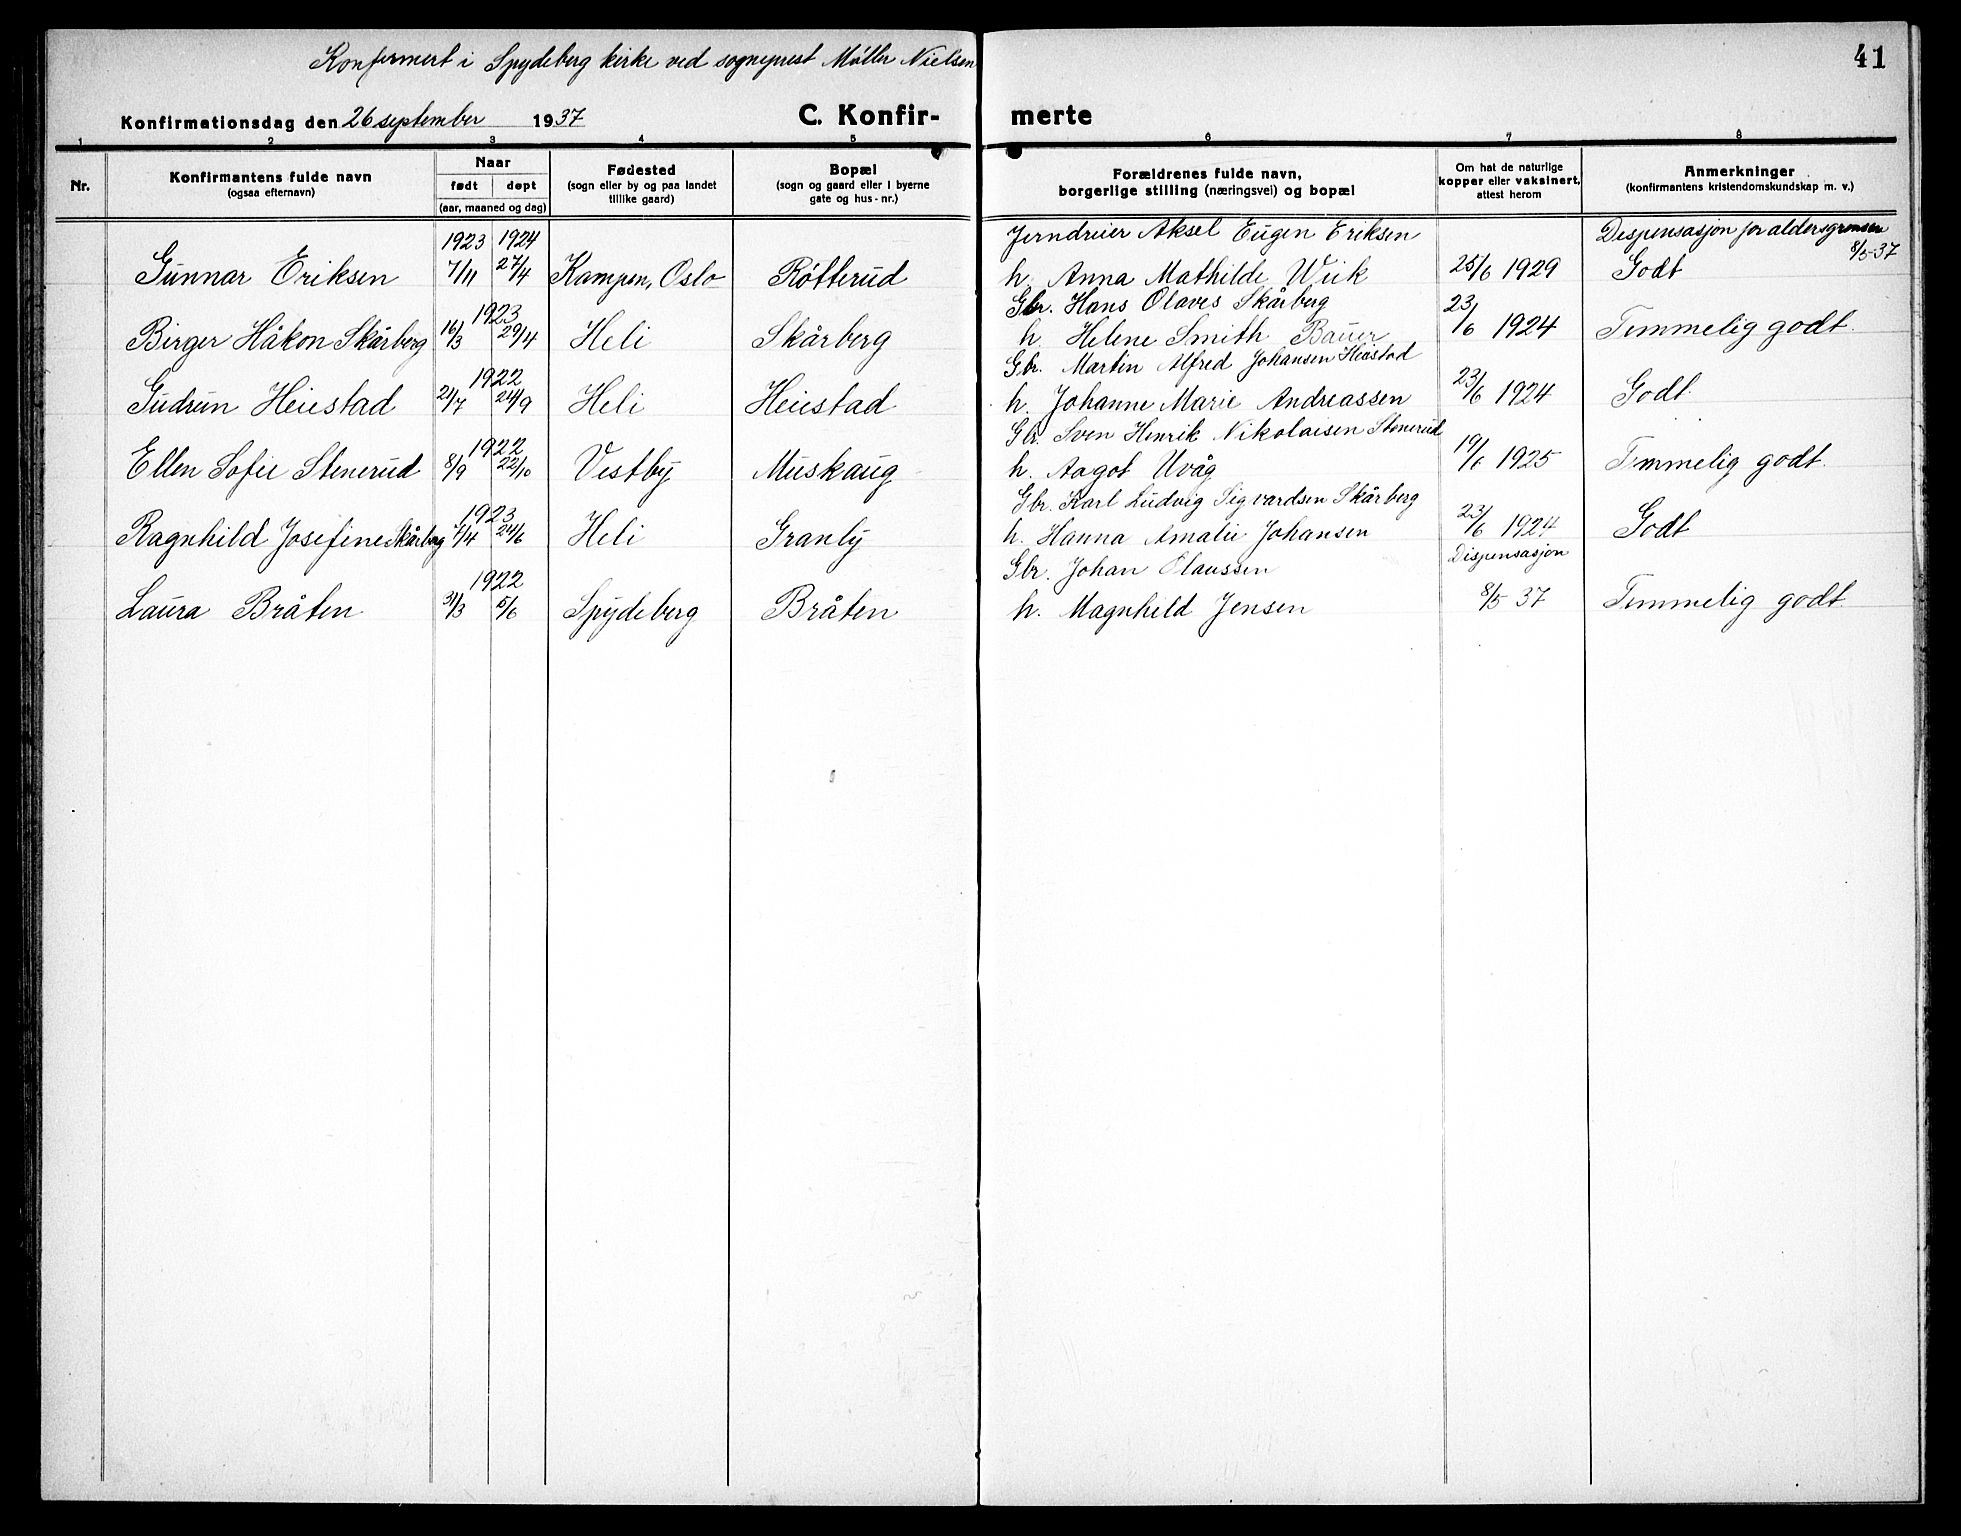 Konfirmert i Spydeberg kirke ved sogneprest Møller Nielsen
41
Konfirmationsdag den 26 september 1937 C. Konfir- merte
1 2 3 4 5 6 7 8
Nr.
Konfirmantens fulde navn
(ogsaa efternavn)
Naar
født døpt
(aar, maaned og dag)
Fødested
(sogn eller by og paa landet
tillike gaard)
Bopæl
(sogn og gaard eller i byerne
gate og hus-nr.)
Forældrenes fulde navn,
borgerlige stilling (næringsvei) og bopæl
Om hat de naturlige
kopper eller vaksinert,
attest herom
Anmerkninger
(konfirmantens kristendomskundskap m. v.)
1923 1924 Jerndreier Aksel Eugen Eriksen Dispensasjon for aldersgrensen
8/5-37
Gunnar Eriksen 7/11 27/4 Kampen, Oslo Røtterud h. Anna Mathilde Wiik 25/6 1929 Godt
1923 Gbr. Hans Olaves Skårberg
Birger Håkon Skårberg 16/3 29/4 Heli Skårberg h. Helene Smith Bauer 23/6 1924 Temmelig godt.
1922 Gbr. Martin Alfred Johansen Heiestad
Gudrun Heiestad 21/7 24/9 Heli Heiestad h. Johanne Marie Andreassen 23/6 1924 Godt.
1922 Gbr. Sven Henrik Nikolaisen Stenerud
Ellen Sofie Stenerud 8/9 22/10 Vestby Muskaug h. Aagot Uvåg 19/6 1925 Temmelig godt.
1923 Gbr. Karl Ludvig Sigvardsen Skårberg
Ragnhild Josefine Skårberg /4 24/6 Heli Granly h. Hanna Amalie Johansen 23/6 1924 Godt
1922 Gbr. Johan Olaussen Dispensasjon
Laura Bråten 31/3 5/6 Spydeberg Bråten h. Magnhild Jensen 8/5 37 Temmelig godt.